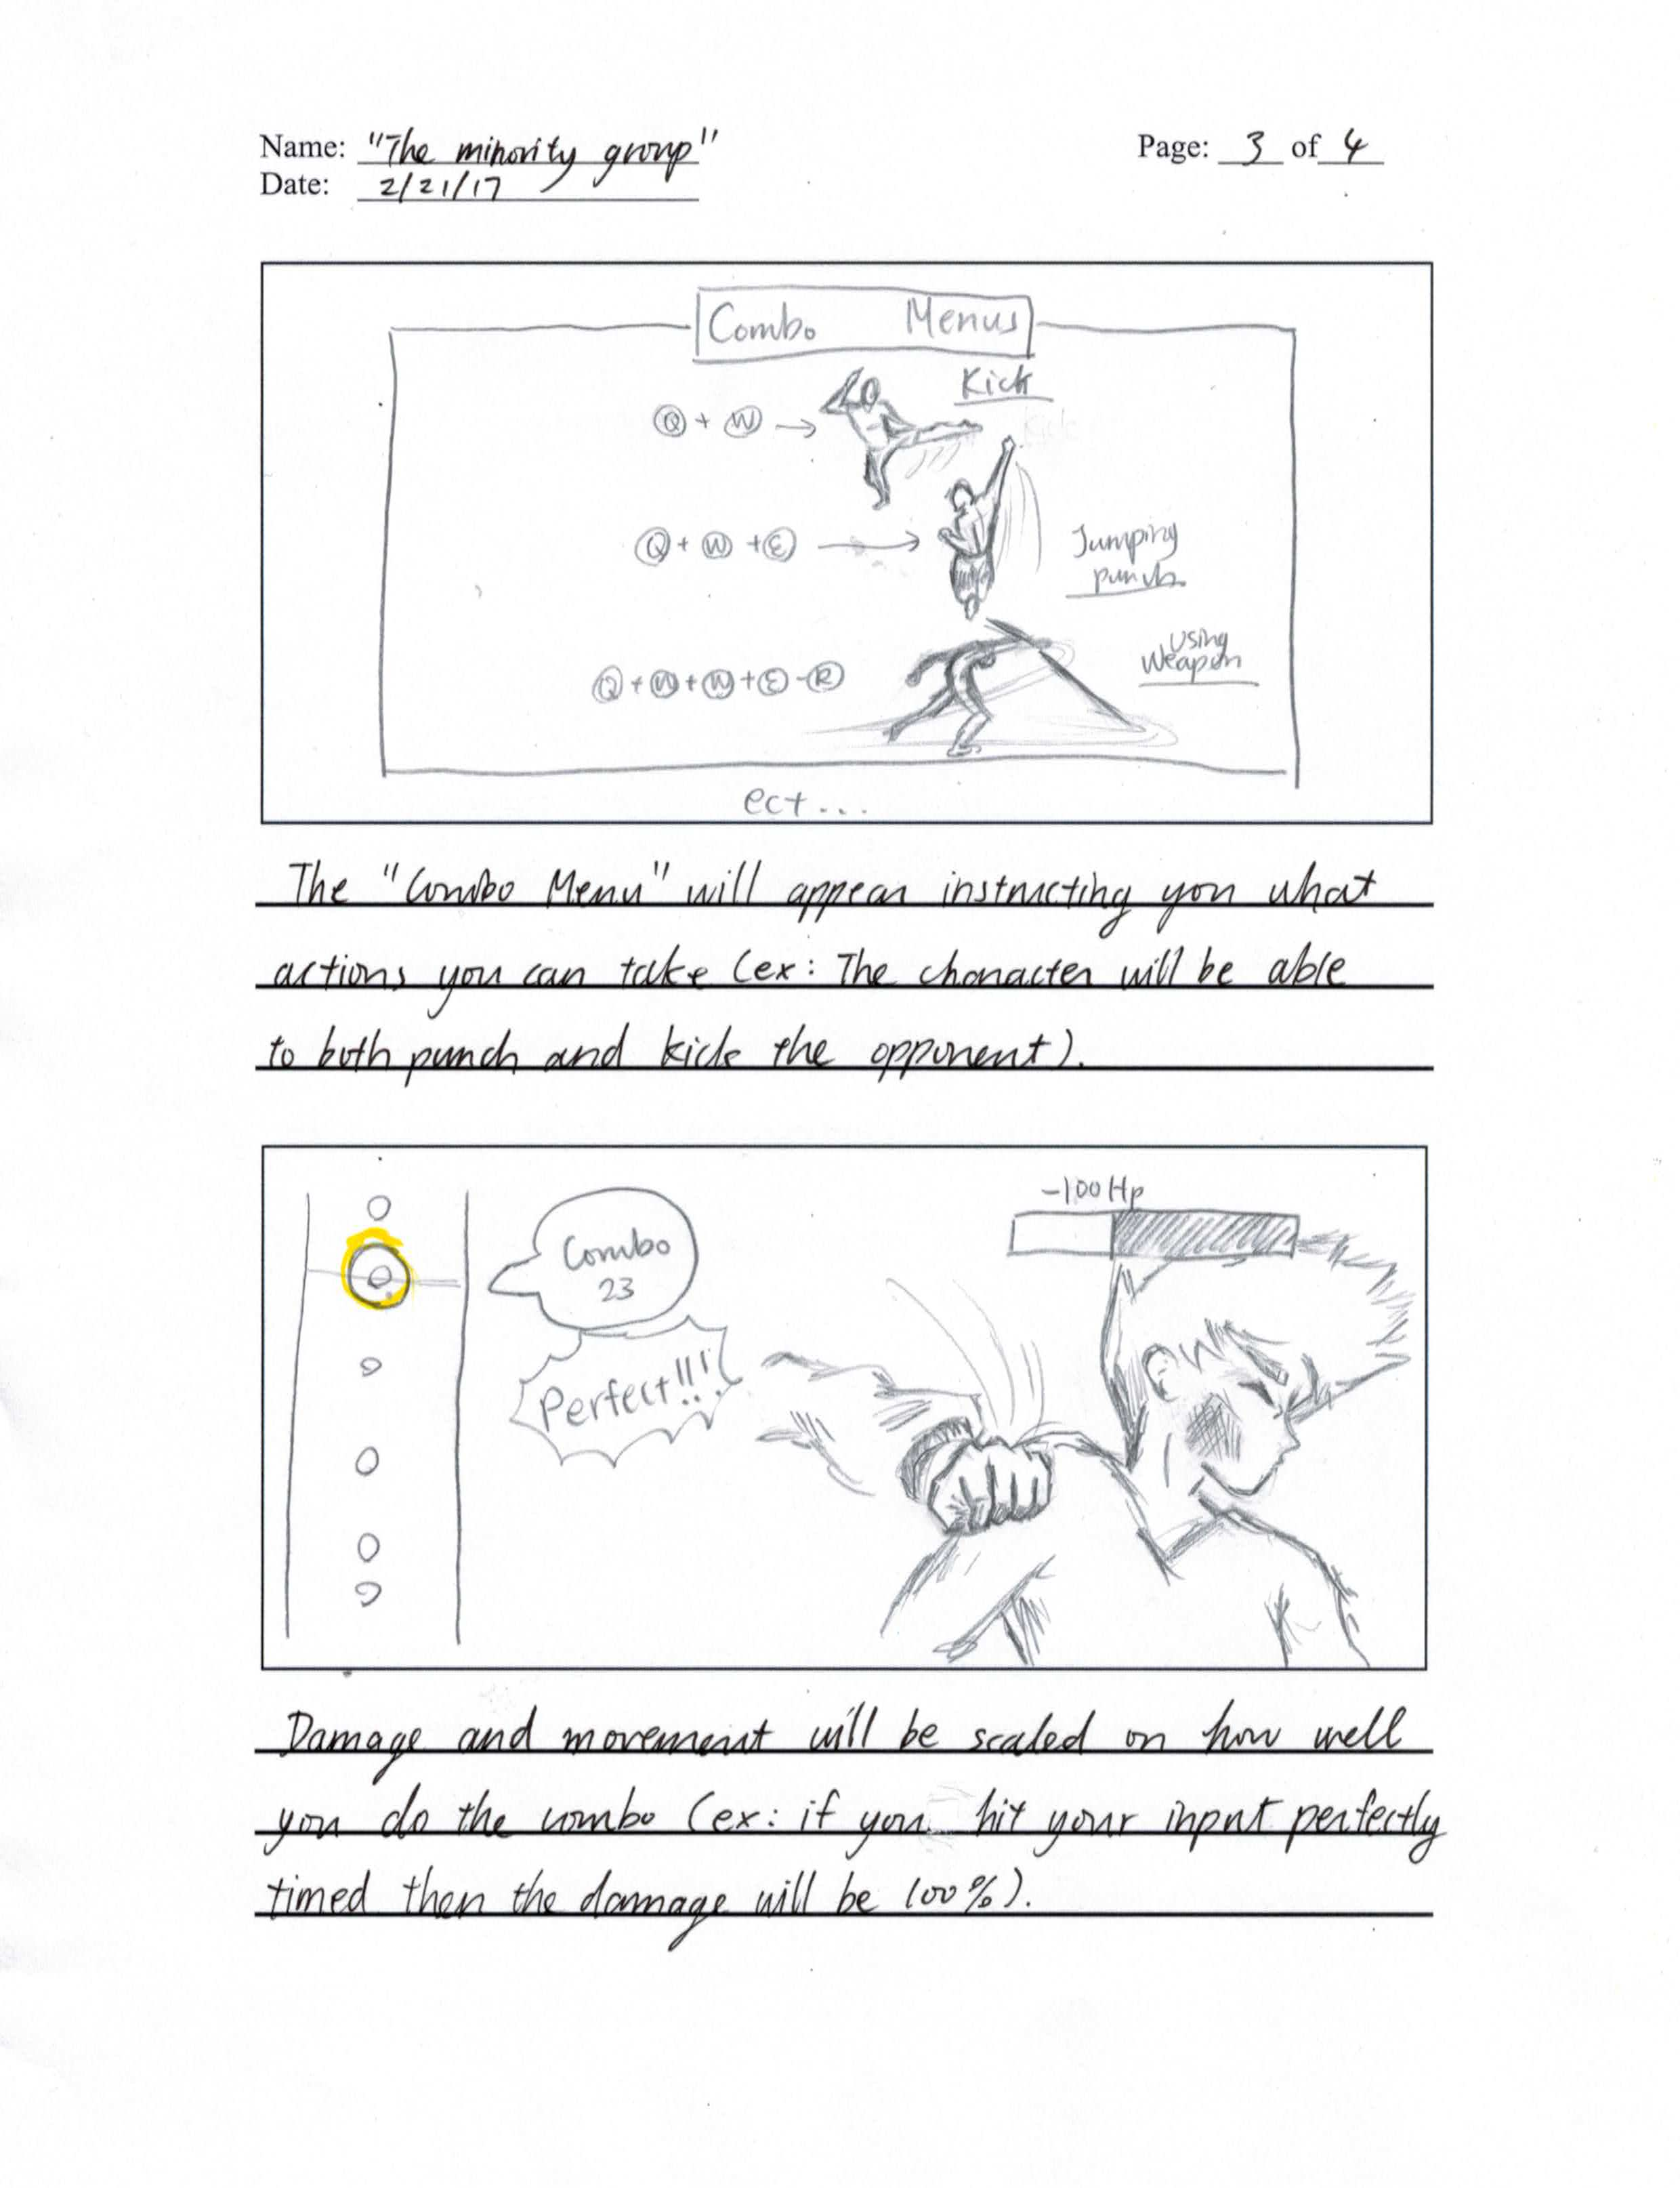 Name: "The minority group"
Page: 3 of 4
Date: 2/21/17
Combo Menus
Kick
Q + W →
Kick
Q + W + E →
Jumping
punch
Using
Weapon
Q + W + W + E - R
ect...
The "Combo Menu" will appear instructing you what
actions you can take (ex: The character will be able
to both punch and kick the opponent).
-100 Hp
Combo
23
Perfect!!!
Damage and movement will be scaled on how well
you do the combo (ex: if you hit your input perfectly
timed then the damage will be 100%).